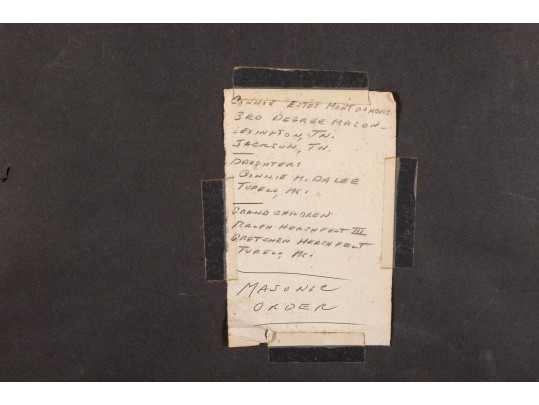 CONNIE ESTES MONTGOMERY
3RD DEGREE MASON -
LEXINGTON, TN.
JACKSON, TN.
DAUGHTERS
CONNIE M. DALEE
TUPELO, MS.
GRAND CHILDREN
RALPH HERSHFELT III
GRETCHEN HERSHFELT
TUPELO, MS.
MASONIC
ORDER